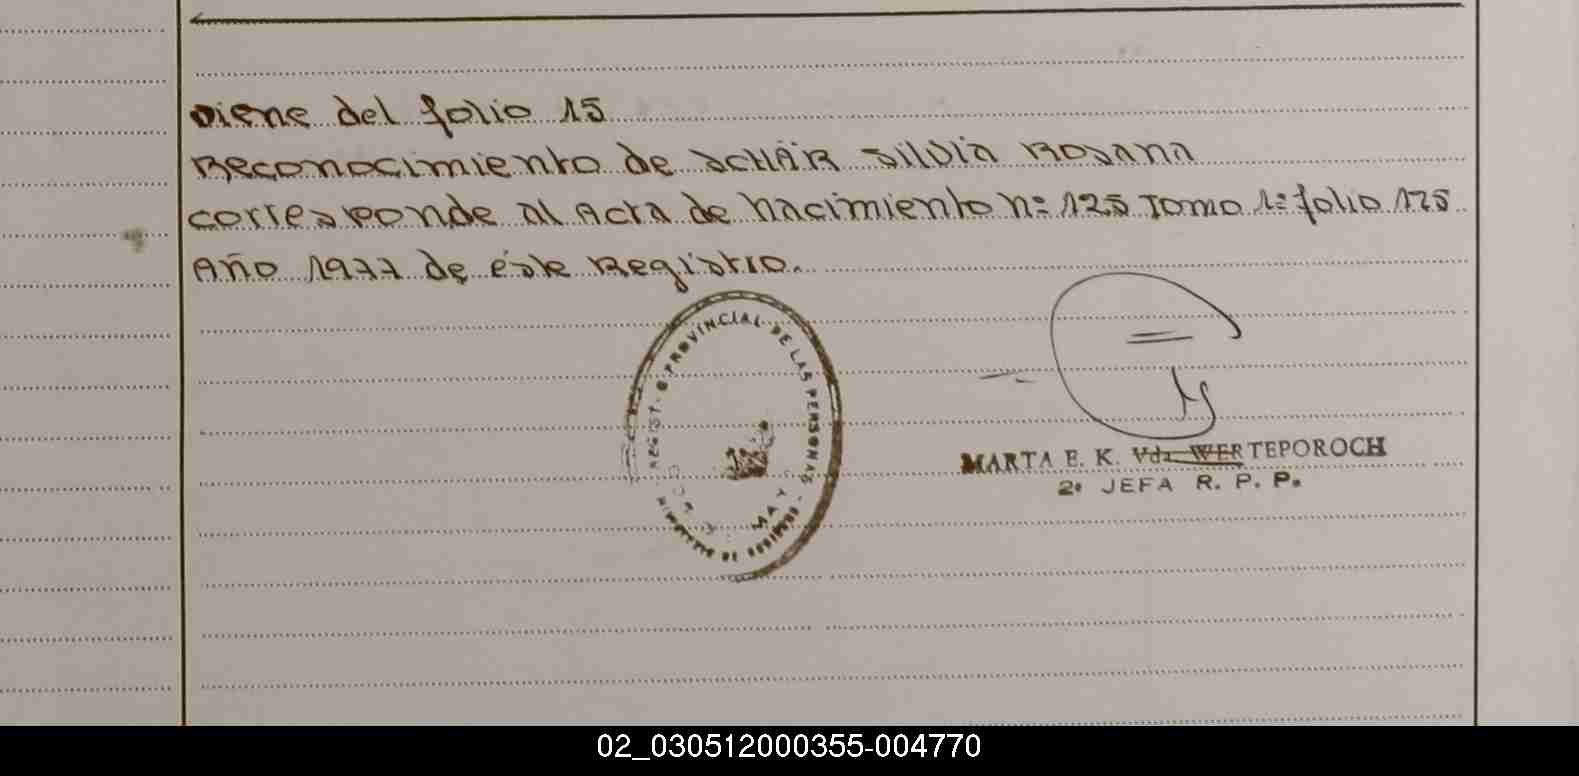 Viene del folio 15
Reconocimiento de SCHAR Silvia Rosana
corresponde al Acta de nacimiento nº 125 Tomo 1º folio 175
Año 1977 de éste Registro.
REGISTRO PROVINCIAL DE LAS PERSONAS
MINISTERIO DE GOBIERNO
MARTA E. K. Vda. WERTEPOROCH
2º JEFA R. P. P.
02_030512000355-004770